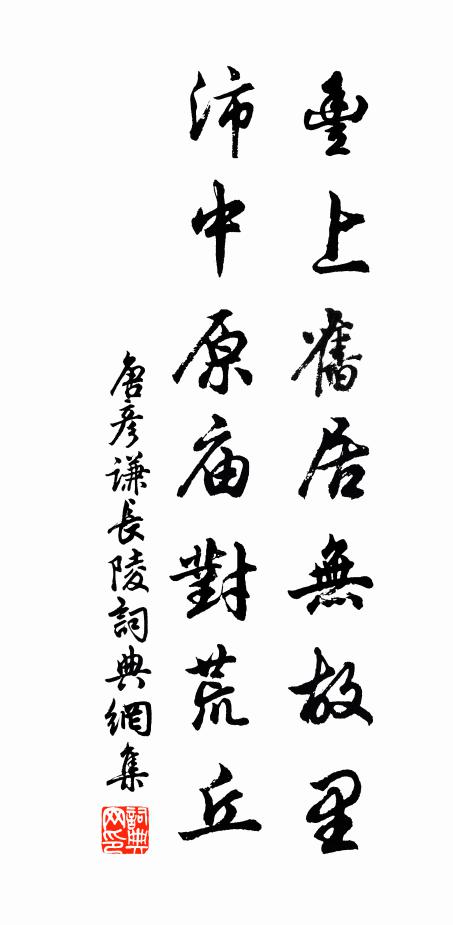 豊上舊居無故里
沛中原庙對荒丘
唐彥謙長陵詞典網集
詞典网印